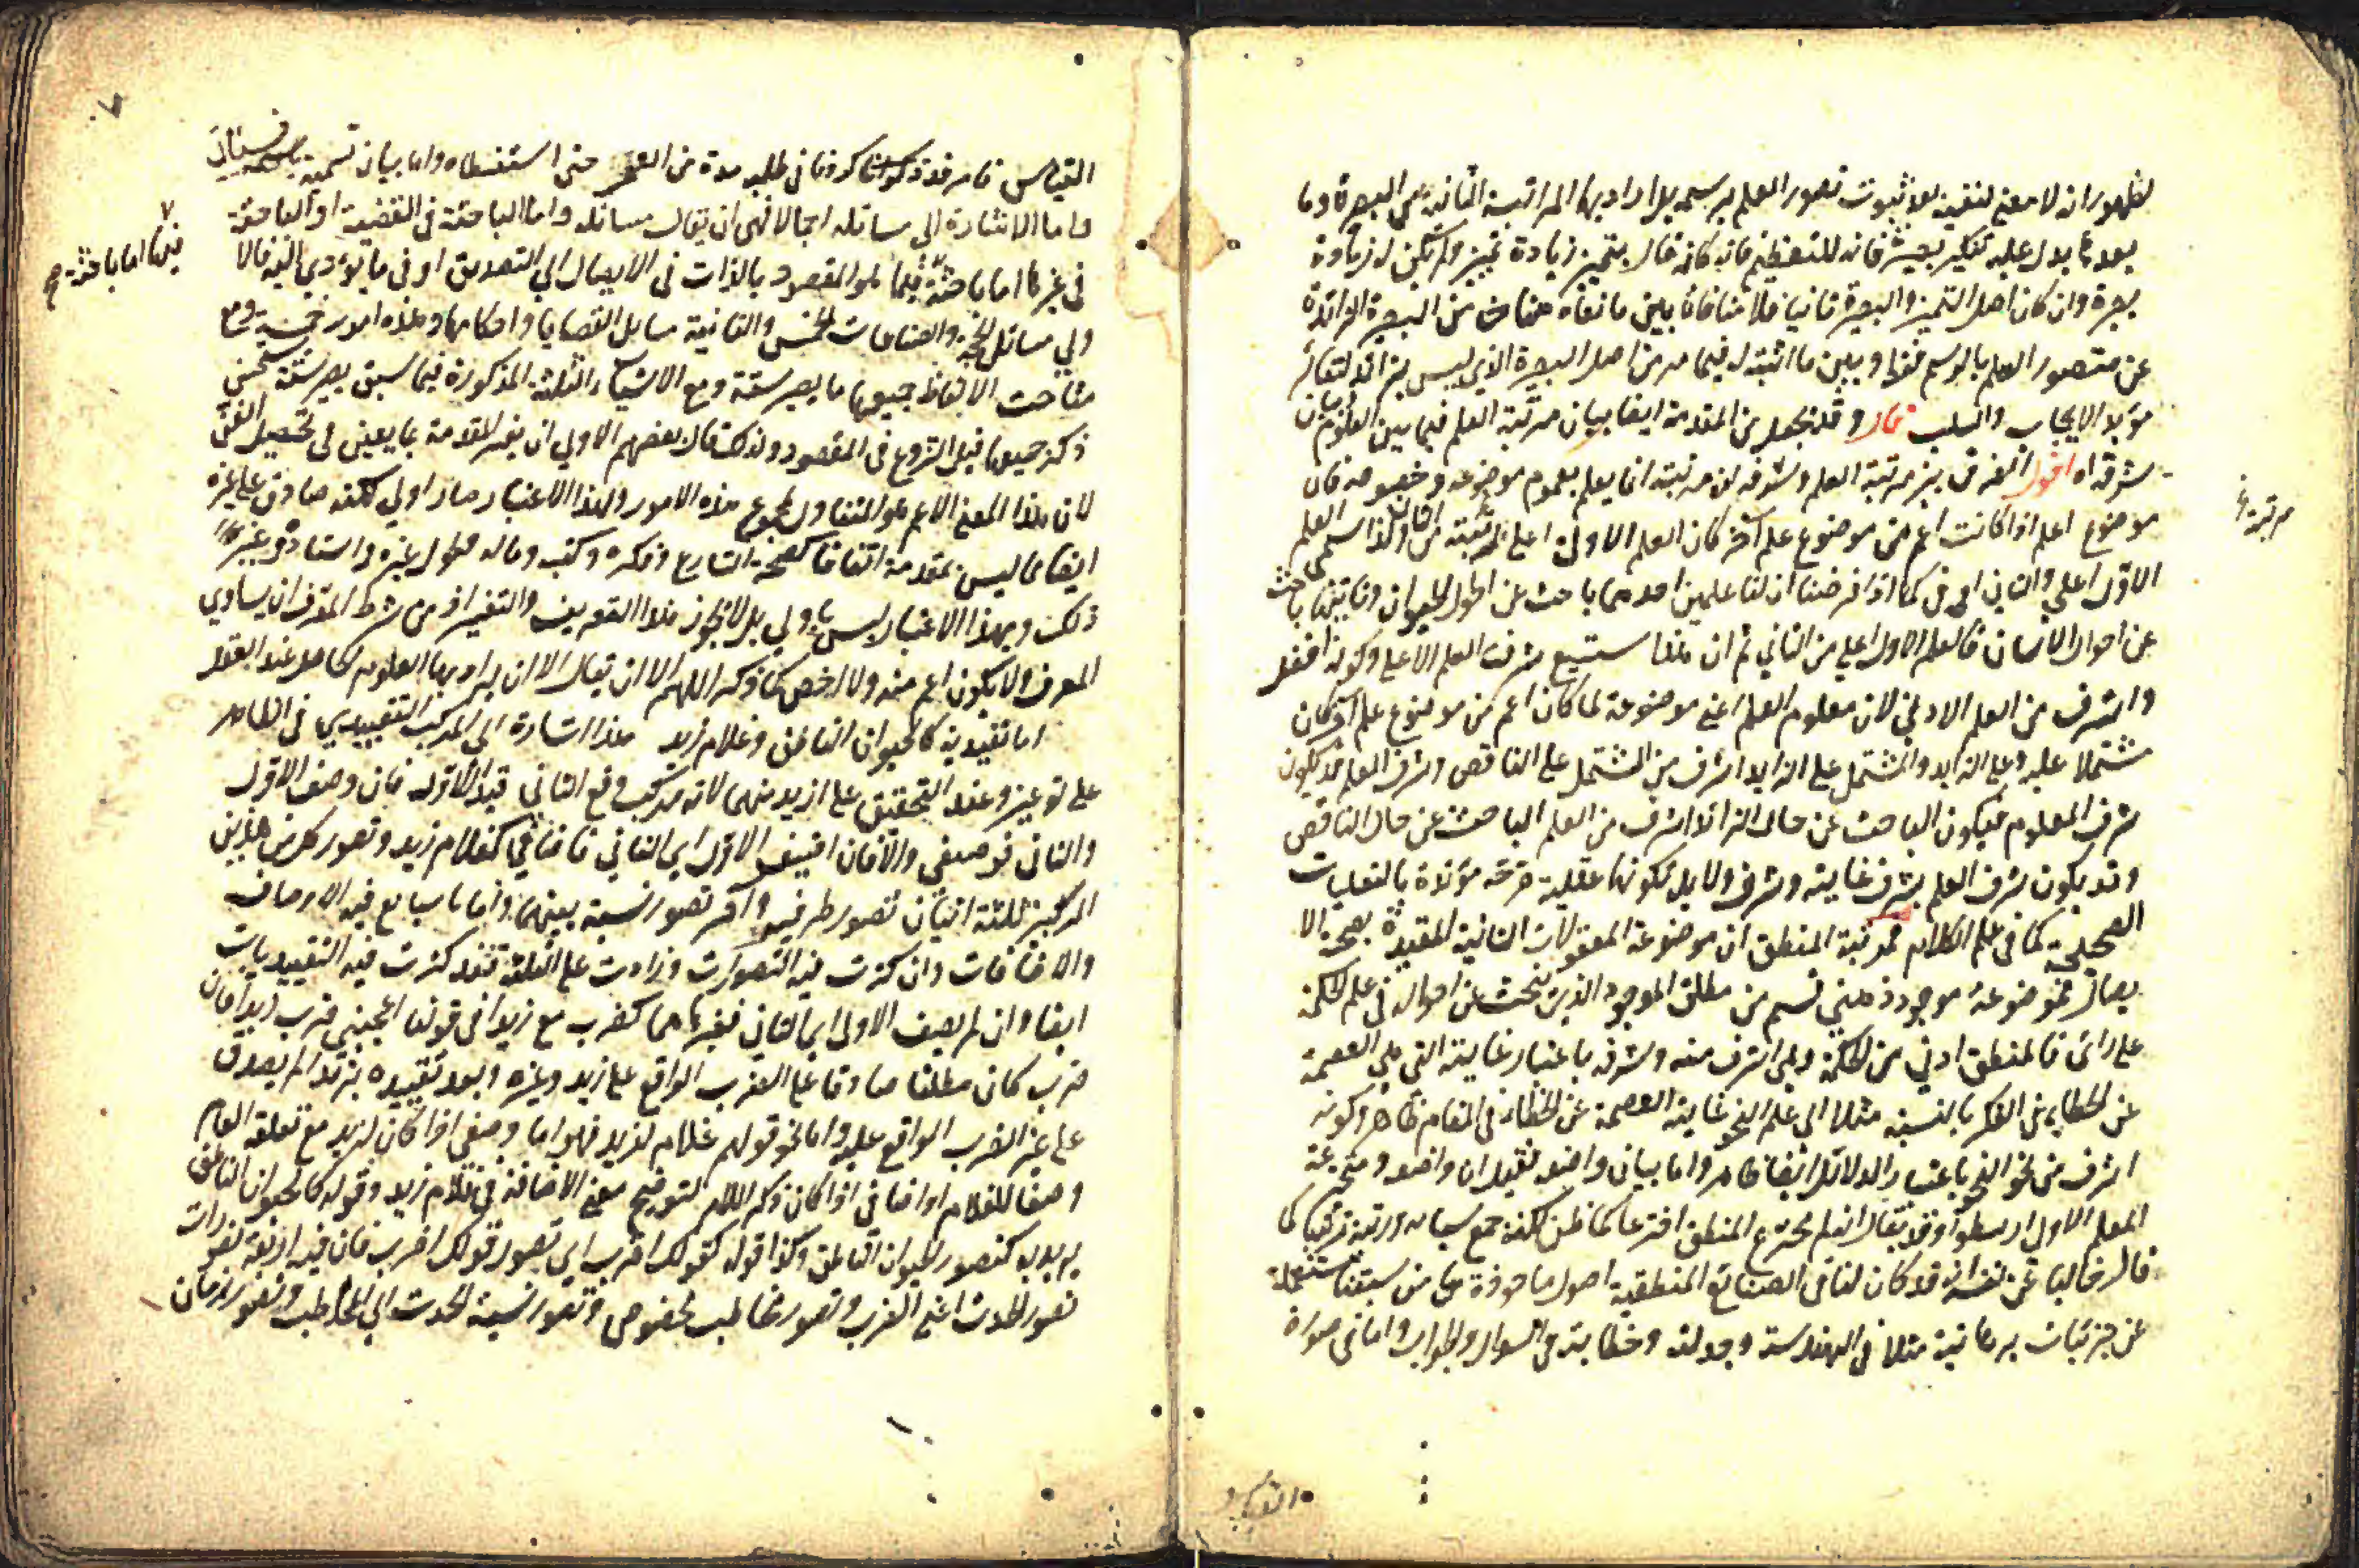 لظهور انه لا معنى لنفيه بعد ثبوت تصور العلم برسمه بل اراد بها المرتبة الثانية من البصيرة وما
بعدها يدل عليه تنكير بصيرة فانه للتعظيم فانه كانه قال بتميز زيادة تميز ولم تكن له زيادة
بصيرة وان كان اصل التميز والبصيرة ثانيا فلا منافاة بين ما نفاه هنا من البصيرة الزائدة
عن متصور العلم بالرسم فقط وبين ما اثبته له فيما مر من اصل البصيرة الذي ليس بزائد لتغاير
مورد الايجاب والسلب قال وقد نجعل من المقدمة ايضا بيان مرتبة العلم فيما بين العلوم وبيان
شرفه اه اقول الفرق بين مرتبة العلم وشرفه ان مرتبته انما يعلم بعموم موضوعه وخصوصه فان
موضوع العلم اذا كانت اعم من موضوع علم آخر كان العلم الاول اعلى مرتبة من الثاني ولذا سمي العلم
الاول اعلى والثاني ادنى كما اذا فرضنا ان لنا علمين احدهما باحث عن احوال الحيوان وثانيهما باحث
عن احوال الانسان فالعلم الاول اعلى من الثاني ثم ان هذا يستتبع شرف العلم الاعلى وكونه افضل
واشرف من العلم الادنى لان معلوم العلم اعني موضوعه لما كان اعم من موضوع علم آخر كان
مشتملا عليه وعلى الزايد والمشتمل على الزايد اشرف من المشتمل على الناقص وشرف العلم قد يكون
شرف المعلوم فيكون الباحث عن حال الزائد اشرف من العلم الباحث عن حال الناقص
وقد يكون شرف العلم بشرف غايته وشرف دلايله لكونها عقلية صرفة مؤيدة بالنقليات
الصحيحة كما في علم الكلام فمرتبة المنطق ان موضوعه المعقولات الثانية المقيدة بصحة الا
يصال فموضوعه موجود ذهني قسم من مطلق الموجود الذي يبحث عن احواله في علم الحكمة
على رأي فالمنطق ادنى من الحكمة وهي اشرف منه وشرفه باعتبار غايته التي هي العصمة
عن الخطاء في الفكر بالنسبة مثلا الى علم النحو غايته العصمة عن الخطاء في المقام ظاهر وكونه
اشرف من نحو النحو باعتبار الدلائل ايضا ظاهر واما بيان واضعه فقيل ان واضعه ومخترعه
المعلم الاول ارسطو وقد يقال انه لم يخترع المنطق اختراعا كاملا لكنه جمع مسائله ورتبه ترتيبا كما
قال حاكيا عن نفسه انه قد كان لنا في الصنائع المنطقية اصول ماخوذة ممن سبقنا مشتملة
عن جزئيات برهانية مثلا في الهندسة وجدلية وخطابية في السوال والجواب واما في صورة
القياس
مرتبة
القياس فامر قد كددنا في طلبه مدة من العمر حتى استنبطناه واما بيان تسميته
واما الاشارة الى مسائله اجمالا فهي ان يقال مسائله واما الباحثة في القضية او الباحثة
في غيرها اما باحثة فيما هو المقصود بالذات في الايصال الى التصديق او في ما يؤدي اليه فالا
ولى مسائل الحجة والصناعات الخمس والثانية مسايل القضايا واحكامها وهذه امور خمسة ومع
مباحث الالفاظ جميعها ما يصير ستة ومع الاشياء الثلثة المذكورة فيما سبق يصير ستة يحسن
ذكر جميعها قبل الشروع في المقصود ولذلك قال بعضهم الاولى ان يفسر المقدمة بما يعين في تحصيل الفن
لان هذا المعنى الاعم هو المتناول لمجموع هذه الامور ولهذا الاعتبار صار اولى لكنه صادق على غيره
ايضا مما ليس بمقدمة اتفاقا كصحة الشارع وفكره وكتبه وماله وطول عمره واستاذه وغير
ذلك وبهذا الاعتبار ليس باولى بل لا يجوز هذا التعريف والتفسير اذ من شرط المعرف ان يساوي
المعرف ولا يكون اعم منه ولا اخص كما ذكر اللهم الا ان يقال الا ان يراد بها العلوم الحاصلة عند العقل
اما تقييدية كالحيوان الناطق وغلام زيد هذا اشارة الى المركب التقييدي في الظاهر
على نوعين وعند التحقيق على ازيد منهما لانه مركب وقع الثاني قيد الاول فان وصف الاول
والثاني توصيفي والا فان اضيف الاول الى الثاني فاضافي كغلام زيد وتصور كل من هذين
المركبين ثلثة اثنان تصور طرفيه وآخر تصور نسبة بينهما واما ما يتتابع فيه الاوصاف
والاضافات وان كثرت فيه التصورات وزادت على الثلثة فقد كثرت فيه التقييديات
ايضا وان لم يضف الاول الى الثاني فغيرهما كضرب مع زيدا في قولنا اعجبني ضرب زيدا فان
ضرب كان مطلقا صادقا على الضرب الواقع على زيد وغيره وبعد تقييده بزيدا لم يصدق
على غير الضرب الواقع عليه واما نحو قولهم غلام لزيد فهو اما وصفي اذا كان لزيد مع تعلقه العام
وصفا للغلام او اضافي اذا كان ذكر اللام لتوضيح معنى الاضافة في غلام زيد وقوله كالحيوان الناطق
يريد به كتصور الحيوان الناطق وكذا قوله كقولك اضرب اي تصور قولك اضرب فان فيه اربعة تصورات
تصور الحدث اعني الضرب وتصور مخاطب مخصوص وتصور نسبة الحدث الى المخاطب وتصور زمان
فيها اما باحثة صح
٧